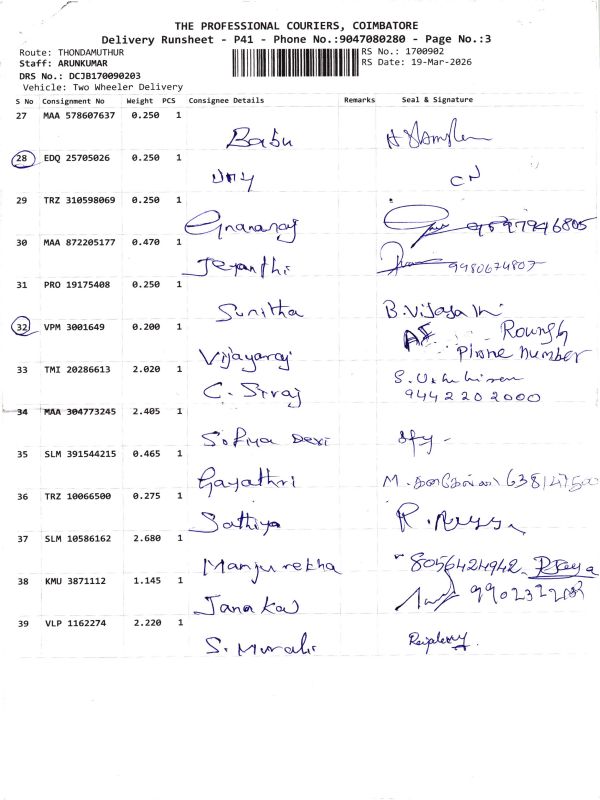 THE PROFESSIONAL COURIERS, COIMBATORE
Delivery Runsheet - P41 - Phone No.:9047080280 - Page No.:3
Route: THONDAMUTHUR RS No.: 1700902
Staff: ARUNKUMAR RS Date: 19-Mar-2026
DRS No.: DCJB170090203
Vehicle: Two Wheeler Delivery
S No Consignment No Weight PCS Consignee Details Remarks Seal & Signature
27 MAA 578607637 0.250 1
Babu
28 EDQ 25705026 0.250 1
CN
29 TRZ 310598069 0.250 1
Gnanaraj
30 MAA 872205177 0.470 1
Jeyanthi
31 PRO 19175408 0.250 1
Sunitha B. Vijaya
32 VPM 3001649 0.200 1
Vijayaraj Phone number
33 TMI 20286613 2.020 1
C. Sivaj 9442202000
34 MAA 304773245 2.405 1
Sofiya Devi
35 SLM 391544215 0.465 1
Gayathri M.
36 TRZ 10066500 0.275 1
Sathiya R.
37 SLM 10586162 2.680 1
Manju retha 8056424942
38 KMU 3871112 1.145 1
Janakai
39 VLP 1162274 2.220 1
S. Murali